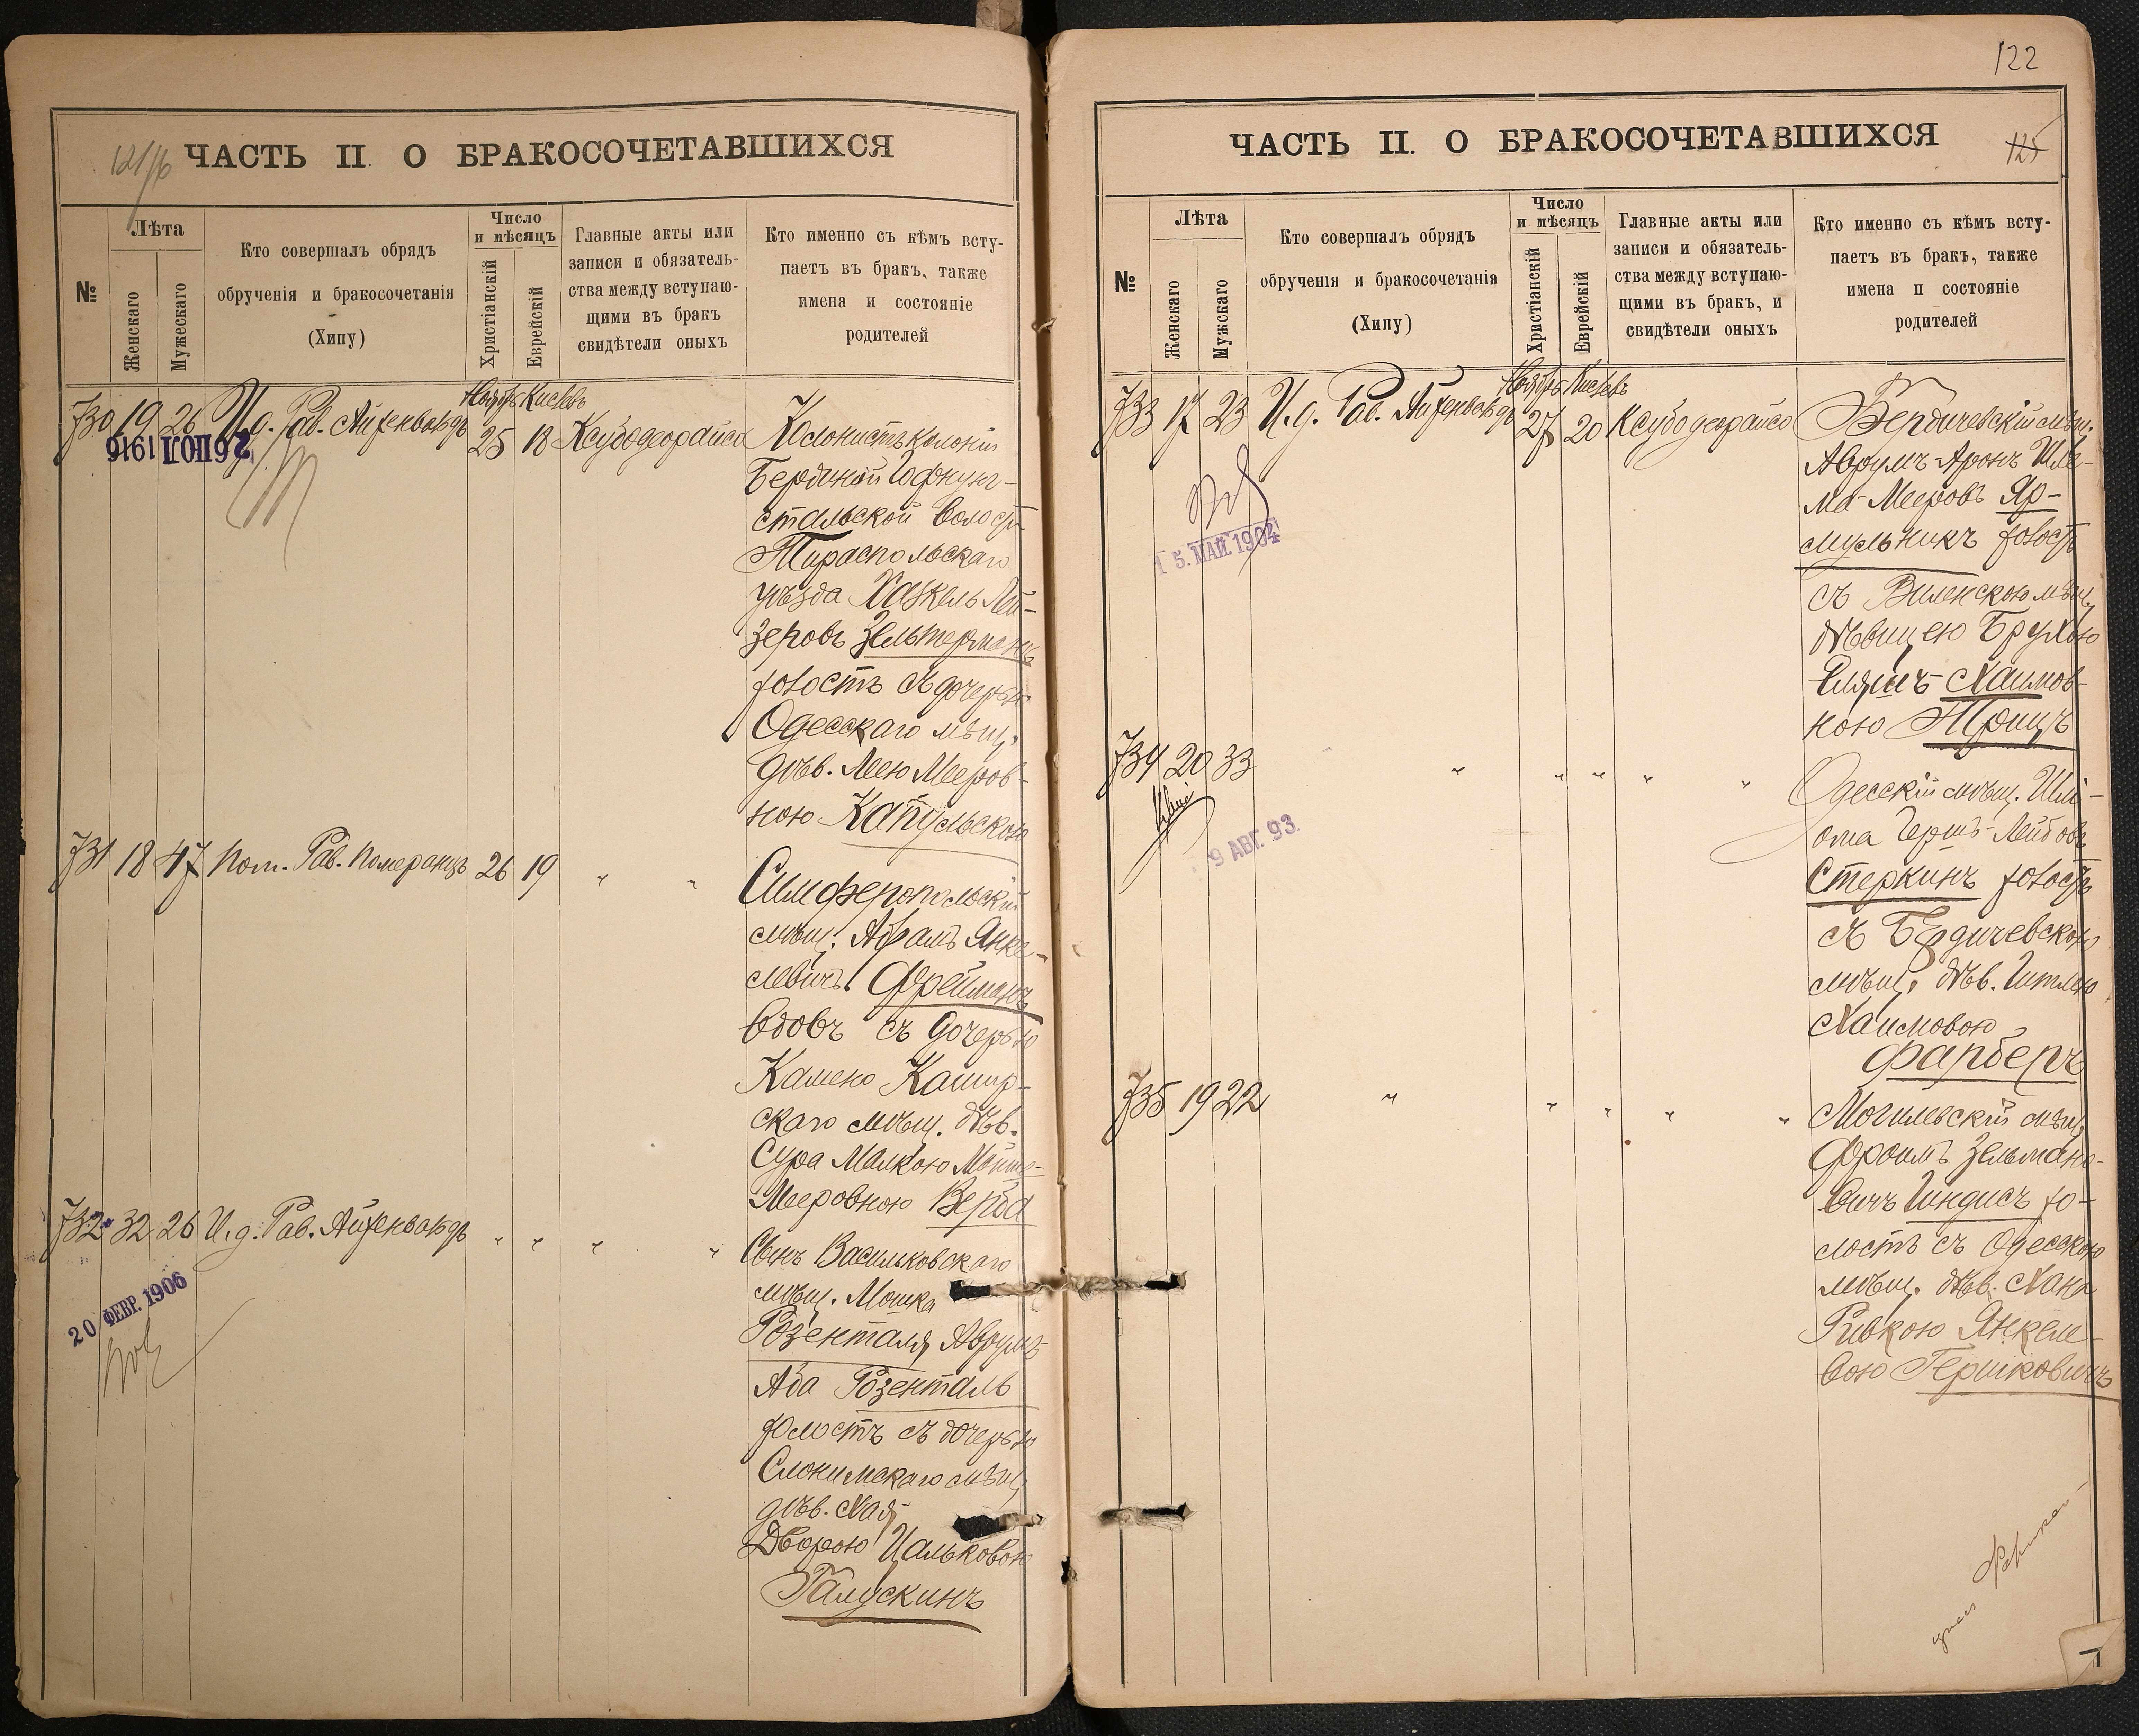 121/б
ЧАСТЬ II. О БРАКОСОЧЕТАВШИХСЯ
№
Лѣта
Женскаго
Мужескаго
Кто совершалъ обрядъ
обрученія и бракосочетанія
(Хипу)
Число
и мѣсяцъ
Христіанскій
Еврейскій
Главные акты или
записи и обязатель-
ства между вступаю-
щими въ бракъ
свидѣтели оныхъ
Кто именно съ кѣмъ всту-
паетъ въ бракъ, также
имена и состояніе
родителей
Ноябрь Кислевъ
730 19 26 И.д. Рав. Айхенвальдъ 25 18 Ксубодеорайса
26 ІЮЛ 1916
Колонистъ колоніи
Бердиной Гофнунг-
стальской волости
Тираспольскаго
уѣзда Хаскель Лей-
зеровъ Зельтерманъ
холостъ съ дочерью
Одесскаго мѣщ.
дѣв. Лею Мееров-
ною Капульскою
731 18 47 Пом. Рав. Померанцъ 26 19 " "
Симферопольскій
мѣщ. Абрамъ Янке-
левичъ Фрейманъ
вдовъ съ дочерью
Камено Кашир-
скаго мѣщ. дѣв.
Сура Малкою Мошко-
Мееровною Верба
732 32 26 И.д. Рав. Айхенвальдъ " " " "
20 ФЕВР. 1906
Сынъ Васильковскаго
мѣщ. Мошка
Розенталя, Аврумъ
Аба Розенталь
холостъ съ дочерью
Слонимскаго мѣщ.
дѣв. Хая
Дворою Ицльковою
Галускинъ
122
ЧАСТЬ II. О БРАКОСОЧЕТАВШИХСЯ
125
№
Лѣта
Женскаго
Мужскаго
Кто совершалъ обрядъ
обрученія и бракосочетанія
(Хипу)
Число
и мѣсяцъ
Христіанскій
Еврейскій
Главные акты или
записи и обязатель-
ства между вступаю-
щими въ бракъ, и
свидѣтели оныхъ
Кто именно съ кѣмъ всту-
паетъ въ бракъ, также
имена и состояніе
родителей
Ноябрь Кислевъ
733 17 23 И.д. Рав. Айхенвальдъ 27 20 Ксубодеорайса
15. МАЙ. 1904
Бердичевскій мѣщ.
Аврумъ-Аронъ Шле-
ма-Мееровъ Яр-
мульникъ холостъ
съ Виленскою мѣщ.
дѣвицею Брухою
Еляшъ-Хаимов-
ною Трицъ
734 20 33 " " " " "
9 АВГ. 93.
Одесскій мѣщ. Шлі-
ома Гершъ-Лейбовъ
Стеркинъ холостъ
съ Бердичевскою
мѣщ. дѣв. Гитлею
Хаимовою
Фарберъ
735 19 22 " " " " "
Могилевскій мѣщ.
Фроимъ Зельмано-
вичъ Гиндисъ хо-
лостъ съ Одесскою
мѣщ. дѣв. Хана
Ривкою Янкеле-
вою Гершковичъ